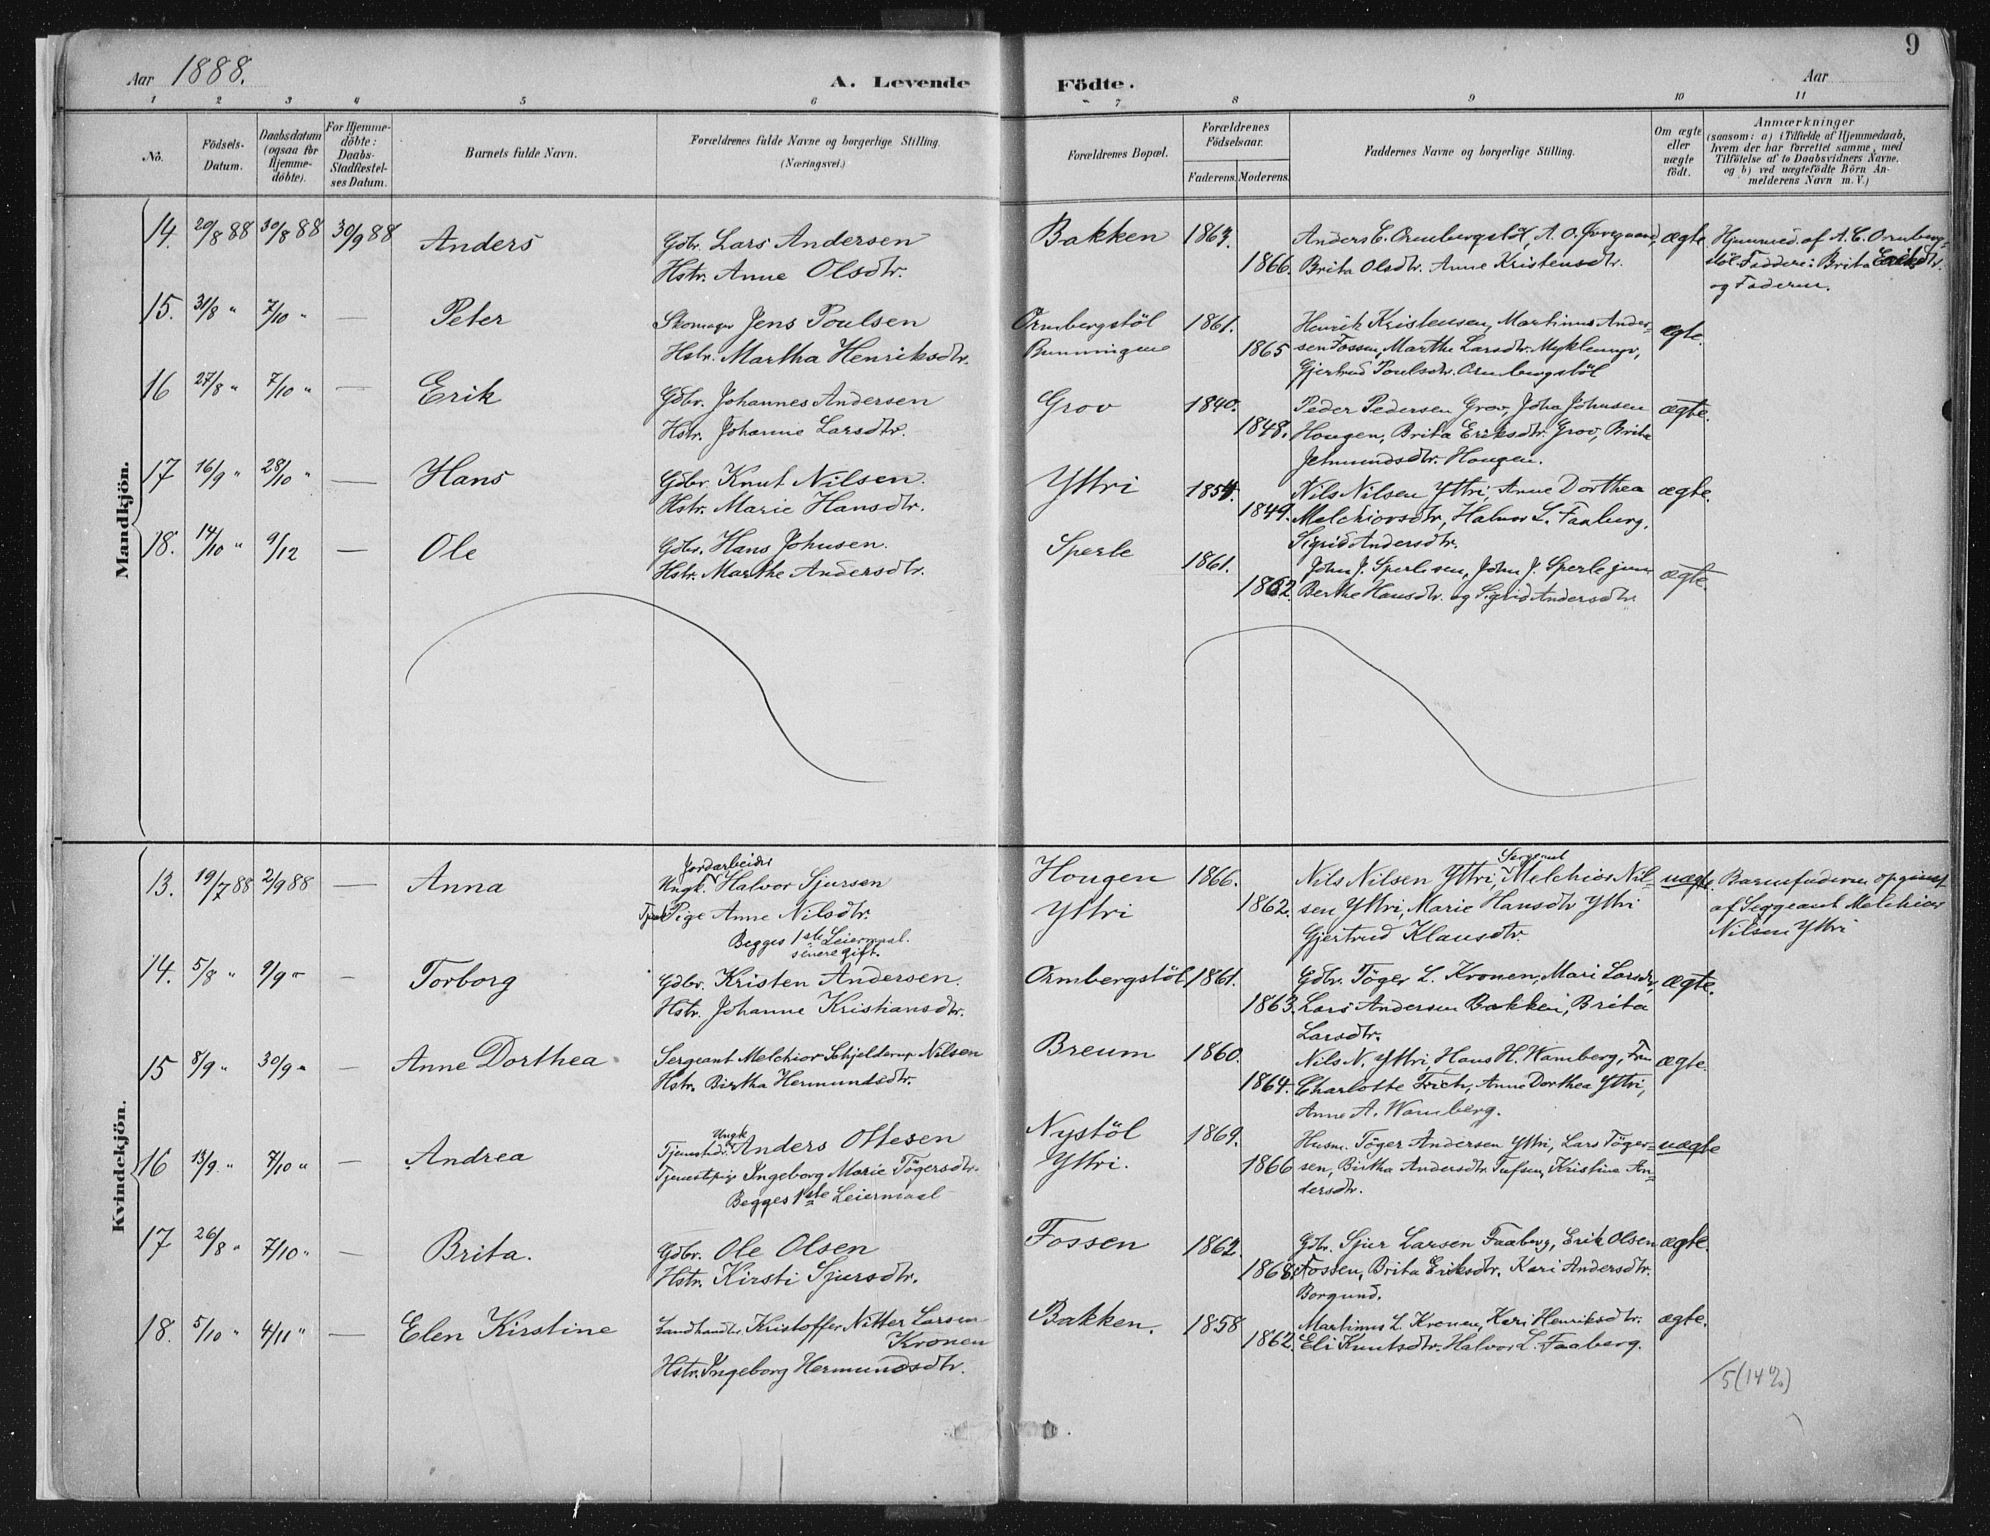 Aar 1888.
A. Levende
Födte.
Aar
9
1 2 3 4 5 6 7 8 9 10 11
No.
Födsels-
Datum.
Daabsdatum
(ogsaa for
Hjemme-
döbte).
For Hjemme-
döbte:
Daabs-
Stadfæstel-
ses Datum.
Barnets fulde Navn.
Forældrenes fulde Navne og borgerlige Stilling.
(Næringsvei.)
Forældrenes Bopæl.
Forældrenes
Födselsaar.
Faderens. Moderens.
Faddernes Navne og borgerlige Stilling.
Om ægte
eller
uægte
født.
Anmærkninger
(saasom: a) i Tilfælde af Hjemmedaab,
hvem der har forrettet samme, med
Tilföielse af to Daabsvidners Navne,
og b) ved uægtefödte Börn An-
melderens Navn m. V.)
Mandkjön.
14. 20/8 88 30/8 88 30/9 88 Anders
Gdbr. Lars Andersen
Hstr. Anne Olsdtr.
Bakken 1863. 1866.
Anders C. Ormbergstöl, A. O.
Brita Olsdtr. Anne Kristensdtr.
ægte
Hjemmed. af A. C. Ormberg-
stöl Faddere: Brita
og Faderen.
15. 31/8 " 7/10 " — Peter
Skomager Jens Poulsen
Hstr. Martha Henriksdtr.
Ormbergstöl
1861. 1865
Henrik Kristensen, Martinus Ander-
sen Fossen, Marthe Larsdtr. Myklemyr,
Gjertrud Poulsdtr. Ormbergstöl
ægte.
16 27/8 " 7/10 " — Erik
Gdbr. Johannes Andersen
Hstr. Johanne Larsdtr.
Grov 1840. 1848.
Peder Pedersen Grov, Joha Johnsen
Hougen, Brita Eriksdtr. Grov, Brita
Jetmundsdtr. Hougen.
ægte.
17 16/9 " 28/10 " — Hans
Gdbr. Knut Nilsen.
Hstr. Marie Hansdtr.
Yttri 1854. 1849.
Nils Nilsen Yttri, Anne Dorthea
Melchiorsdtr, Halvor L. Faaberg,
Sigrid Andersdtr.
ægte.
18. 14/10 " 9/12 — Ole
Gdbr. Hans Johnsen.
Hstr. Marthe Andersdtr.
Sperle 1861. 1862.
John J. Sperle sen, John J. Sperle jun
Berthe Hansdtr. og Sigrid Andersdtr.
ægte.
Kvindekjön.
13. 19/7 88 2/9 88 — Anna
Jordarbeider
Ungk. Halvor Sjursen
Tjen. Pige Anne Nilsdtr.
Begges 1ste Leiermaal.
senere gift.
Hougen
Yttri
1866. 1862.
Sergeant
Nils Nilsen Yttri, Melchior Nil-
sen Yttri, Marie Hansdtr Yttri
Gjertrud Klausdtr.
uægte.
Barnefaderen opgivet
af Sergeant Melchior
Nilsen Yttri
14. 5/8 " 9/9 " — Torborg
Gdbr. Kristen Andersen.
Hstr. Johanne Kristiansdtr.
Ormbergstöl 1861. 1863.
Gdbr. Töger L. Kronen, Mari Larsdtr,
Lars Andersen Bakken, Brita
Larsdtr.
ægte.
15 8/9 " 30/9 " Anne Dorthea
Sergeant Melchior Schjelderup Nilsen
Hstr. Birtha Hermundsdtr.
Breum 1860. 1864.
Nils N. Yttri, Hans H. Wamberg, Fru
Charlotte Frich, Anne Dorthea Yttri,
Anne A. Wamberg.
ægte.
16 13/9 " 7/10 " — Andrea
Ungk
Tjenestedr. Anders Ottesen
Tjenestepige Ingeborg Marie Tögersdtr.
Begges 1ste Leiermaal
Nystöl
Yttri.
1869. 1866
Husm. Töger Andersen Yttri, Lars Töger-
sen, Birtha Andersdtr. Kristine An-
dersdtr.
uægte
17 26/8 " 7/10 " — Brita.
Gdbr. Ole Olsen
Hstr. Kirsti Sjursdtr.
Fossen 1862. 1868.
Gdbr. Sjur Larsen Faaberg, Erik Olsen
Fossen, Brita Eriksdtr. Kari Andersdtr.
Borgund.
ægte.
18. 5/10 " 4/11 " — Elen Kirstine
Landhandler Kristoffer Nitter Larsen
Kronen
Hstr. Ingeborg Hermundsdtr.
Bakken. 1858 1862.
Martinus L. Kronen, Kari Henriksdtr.
Eli Knutsdtr. Halvor L. Faaberg.
ægte.